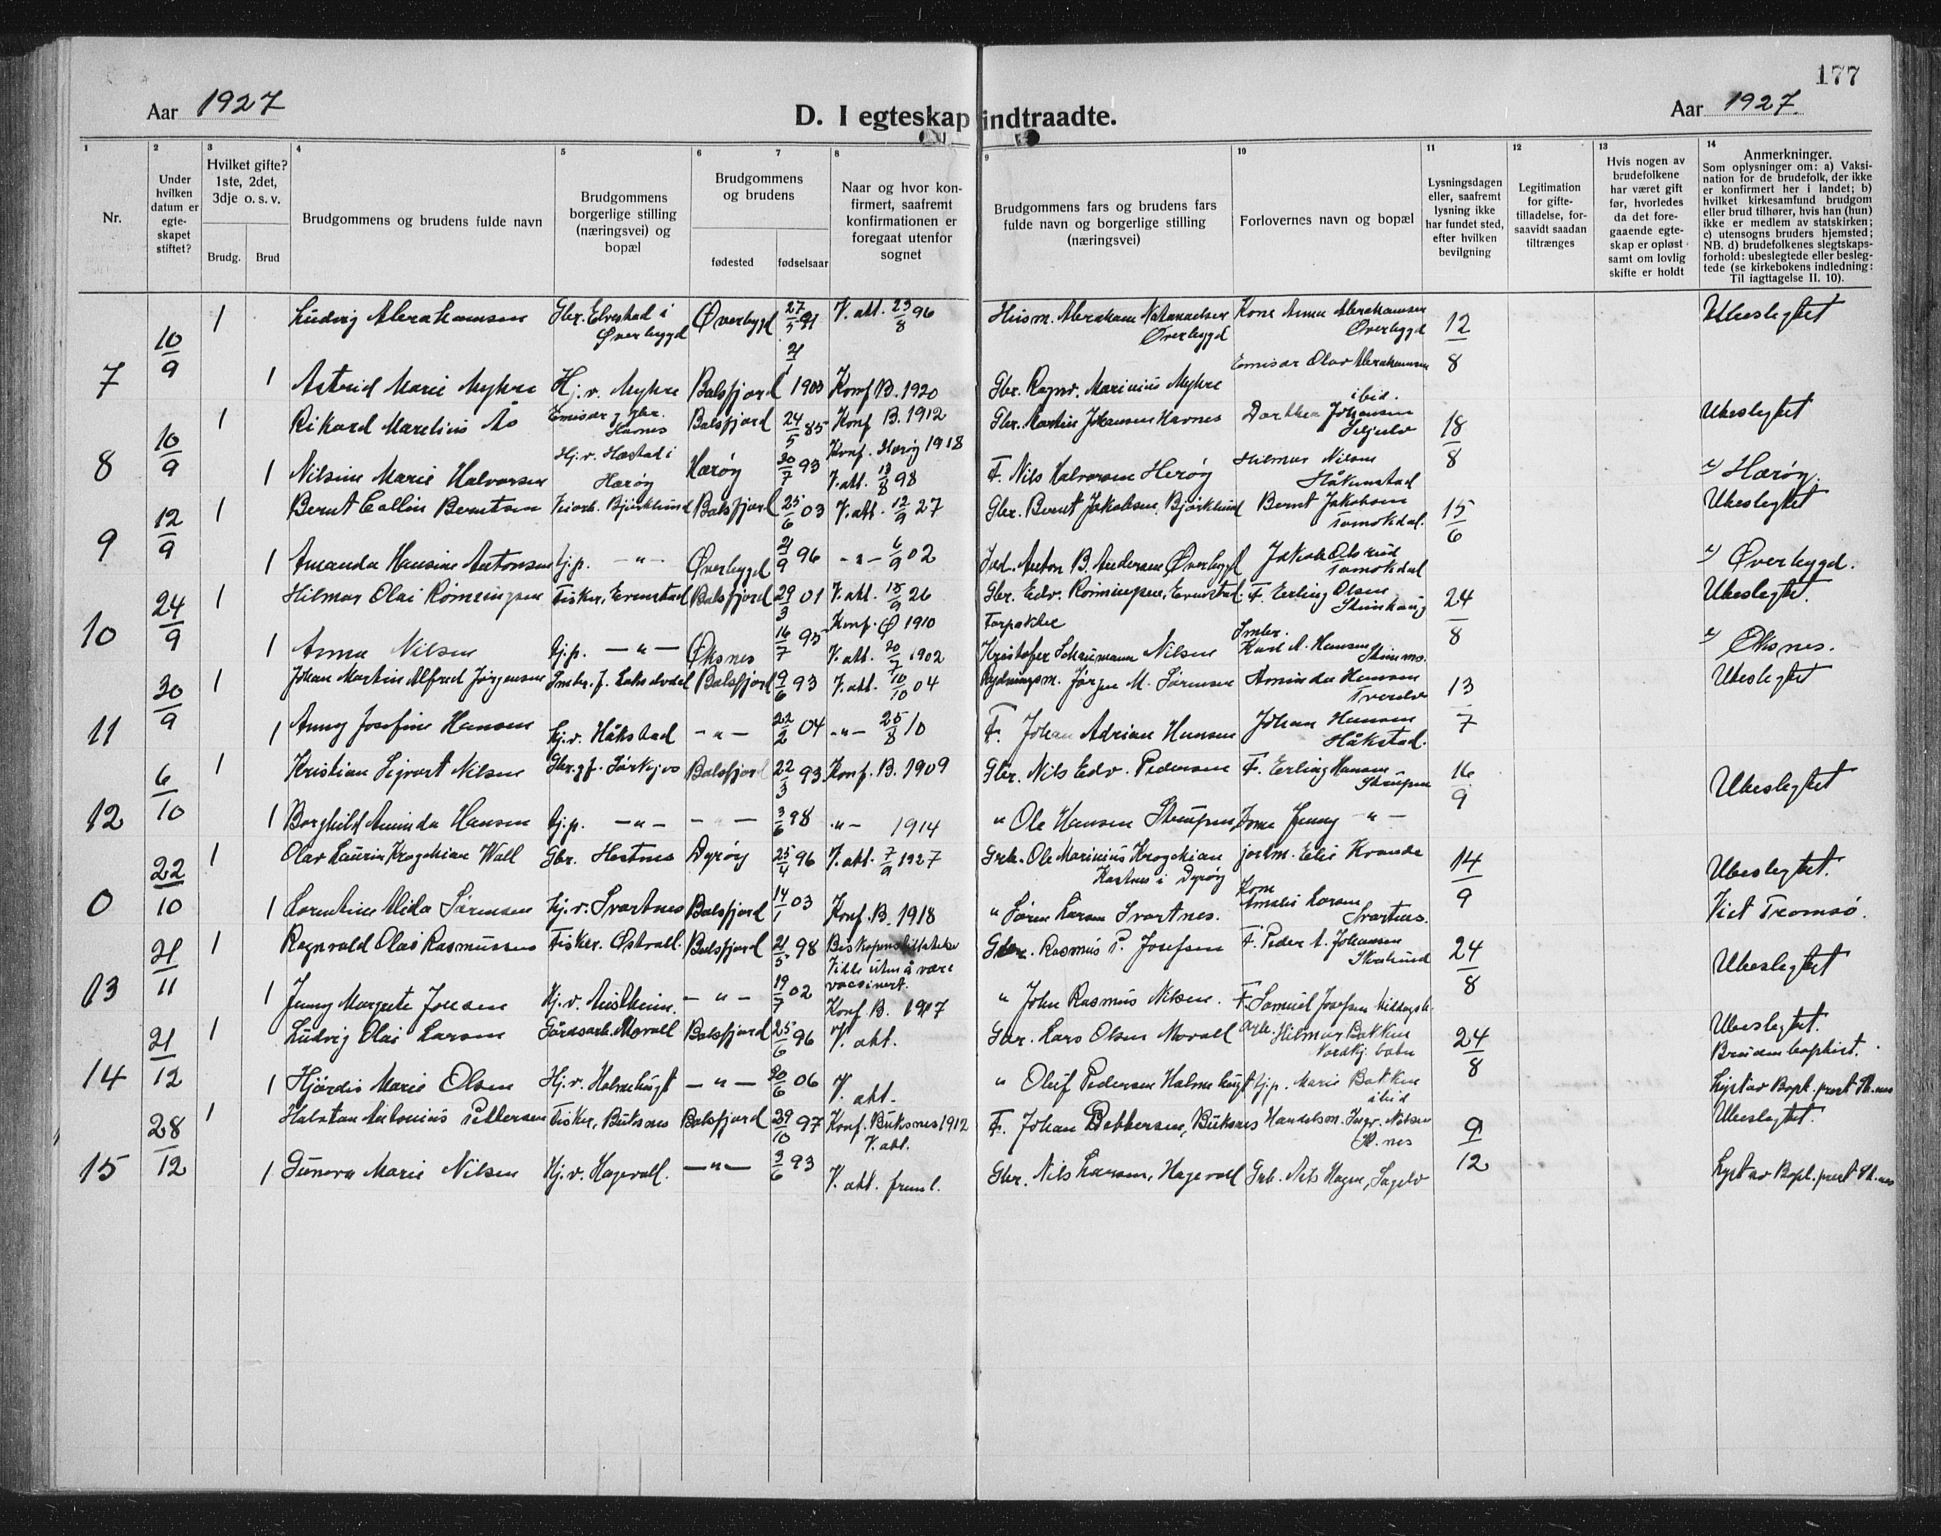 177
Aar 1927
D. I egteskap indtraadte.
Aar 1927.
1
Nr.
2
Under
hvilken
datum er
egte-
skapet
stiftet?
3
Hvilket gifte?
1ste, 2det,
3dje o. s. v.
Brudg.
Brud
4
Brudgommens og brudens fulde navn
5
Brudgommens
borgerlige stilling
(næringsvei) og
bopæl
6
7
Brudgommens
og brudens
fødested
fødselsaar
8
Naar og hvor kon-
firmert, saafremt
konfirmationen er
foregaat utenfor
sognet
9
Brudgommens fars og brudens fars
fulde navn og borgerlige stilling
(næringsvei)
10
Forlovernes navn og bopæl
11
Lysningsdagen
eller, saafremt
lysning ikke
har fundet sted,
efter hvilken
bevilgning
12
Legitimation
for gifte-
tilladelse, for-
saavidt saadan
tiltrænges
13
Hvis nogen av
brudefolkene
har været gift
før, hvorledes
da det fore-
gaaende egte-
skap er opløst
samt om lovlig
skifte er holdt
14
Anmerkninger.
Som oplysninger om: a) Vaksi-
nation for de brudefolk, der ikke
er konfirmert her i landet; b)
hvilket kirkesamfund brudgom
eller brud tilhører, hvis han (hun)
ikke er medlem av statskirken;
c) utensogns bruders hjemsted;
NB. d) brudefolkenes slegtskaps-
forhold: ubeslegtede eller besleg-
tede (se kirkebokens indledning:
Til iagttagelse II. 10).
7 10/9 1 Ludvig Abrahamsen Gbr. Elvestad i Øverbygd Øverbygd 27/5 91 V. att. 23/8 96 Husm. Abraham Øverbygd Kone Anna Abrahamsen Øverbygd 12/8 Ubeslegtet
1 Astrid Marie Myhre Hj. v. Myhre Balsfjord 1903 Konf. B. 1920 Gbr. Ragnv. Marinius Myhre Emissær Olav Abrahamsen ibid.
8 10/9 1 Rikard Marelius Ås Emissær g. Gbr. Havnes Balsfjord 24/5 85 Konf. B. 1912 Gbr. Martin Johansen Havnes Dorthea Johansen 18/8 Ubeslegtet
1 Nilsine Marie Halvorsen Hj. v. Hæstad i Herøy Herøy 30/7 93 Konf. Herøy 1918 V. att. 13/8 98 F. Nils Halvorsen Herøy Hilmar Nilsen Håkenstad c) Herøy.
9 12/9 1 Bernt Collin Berntsen Veiarb. Bjørklund Balsfjord 25/6 03 V. att. 12/9 27 Gbr. Bernt Jakobsen, Bjørklund Bernt Jakobsen Tamokdal. 15/6 Ubeslegtet
1 Amanda Hansine Antonsen tj.p. —"— Øverbygd 21/9 96 —"— 6/9 02 Anton B. Andersen Øverbygd Tamokdal c) Øverbygd.
10 24/9 1 Hilmar Olai Rømmingsen Fisker, Evenstad Balsfjord 29/3 01 V. att. 15/9 26 Gbr. Edv. Rønningsen, Evenstad. F. Erling Olsen 24/8 Ubeslegtet.
1 Anna Nilsen tj.p. —"— Øksnes 16/7 95 Konf. Ø 1910 V. att. 20/7 1902 Forpakter Kristofer Schaumann Nilsen Karl A. Hansen c) Øksnes.
11 30/9 1 Johan Martin Alfred Jørgensen Balsfjord 9/6 93 V. att. 10/10 04 Rydningsm. Jørgen M. Sørensen Aminda Hansen Tverelv 13/7 Ubeslegtet
1 Anny Josefine Hansen hj.v. Håkstad —"— 22/2 04 —"— 25/8 10 F. Johan Adrian Hansen Johan Hansen Håkstad.
12 6/10 1 Kristian Sigvart Nilsen Gbr. g. f. Sørkjos Balsfjord 22/3 93 Konf. B. 1909 Gbr. Nils Edv. Pedersen F. Erling Hansen Strupen 16/9 Ubeslegtet
1 Borghild Aminda Hansen tj.p. —"— —"— 3/6 98 —"— 1914 " Ole Hansen Strupen Jenny —"—
0 22/10 1 Olav Laurin Krogchian Wall Gbr. Hestnes Dyrøy 25/4 96 V. att. 7/9 1927 Grb. Ole Marinius Krogchian Kastnes i Dyrøy jordm. Elie Kvande 14/9 Ubeslegtet.
1 Lorentine Alida Sørensen hj. v. Svartnes Balsfjord 14/1 03 Konf. B. 1918 " Søren Larsen Svartnes. Kone Amalie Larsen Svartnes. Viet Tromsø.
13 21/11 1 Ragnvald Olai Rasmussen Fisker. Østvoll. Balsfjord 21/5 98 Biskopens tillatelse Vilde uten å være vaccinert. Gbr. Rasmus P. Josefsen F. Peder A. Johansen 24/8 Ubeslegtet
1 Jenny Margrete Jensen Hj. v. —"— 19/7 02 Konf. B. 1917 " John Rasmus Nilsen. F. Samuel Josefsen
14 21/12 1 Ludvig Olai Larsen Gårdsarb. Movoll Balsfjord 25/6 96 V. att. Gbr. Lars Olsen Movoll Hilmar Bakken 24/8 Ubeslegtet. Bruden baptist.
1 Hjørdis Marie Olsen Hj. v. Holmslugt —"— 20/6 06 V. att. " Oluf Pedersen tj.p. Marie Bakken ibid Lyst av Bapt. prest
15 28/12 1 Halvtan Antonius Pettersen Fisker, Buksnes Balsfjord 29/10 97 Konf. Buksnes 1912 V. att. F. Johan Pettersen, Buksnes Handelsm. Ingv. Nilsen 9/12 Ubeslegtet.
1 Gunora Marie Nilsen Hj. v. Hagevoll. —"— 3/6 93 V. att. freml. Gbr. Nils Larsen, Hagevoll Grb. Nils Hagen, Sagelv Lyst av Bapt. prest